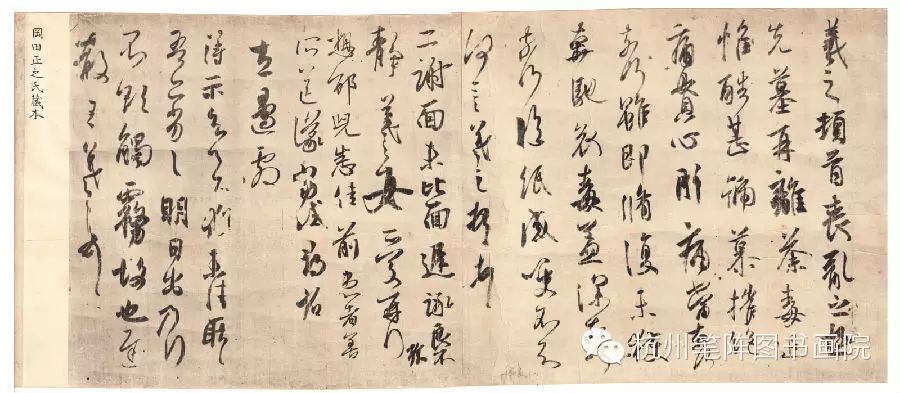 羲之頓首喪亂之極
先墓再離荼毒追
惟酷甚號慕摧絕
痛貫心肝痛當奈何
奈何雖即脩復未獲
奔馳哀毒益深奈何
奈何臨紙感哽不知
何言羲之頓首頓首
二謝面未比面遲詠良不
靜羲之女愛再拜
想邰兒悉佳前患者善
所送議當試尋
左邊劇
得示知足下猶未佳耿耿
吾亦劣劣明日出乃行
不欲觸霧故也遲
散王羲之頓首
岡田正之氏藏本
杭州笔阵图书画院